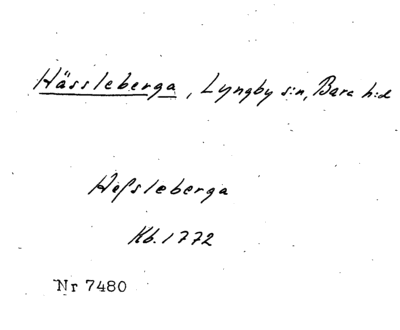 Hässleberga, Lyngby s:n, Bara h:d
Heſsleberga
Kb. 1772
Nr 7480